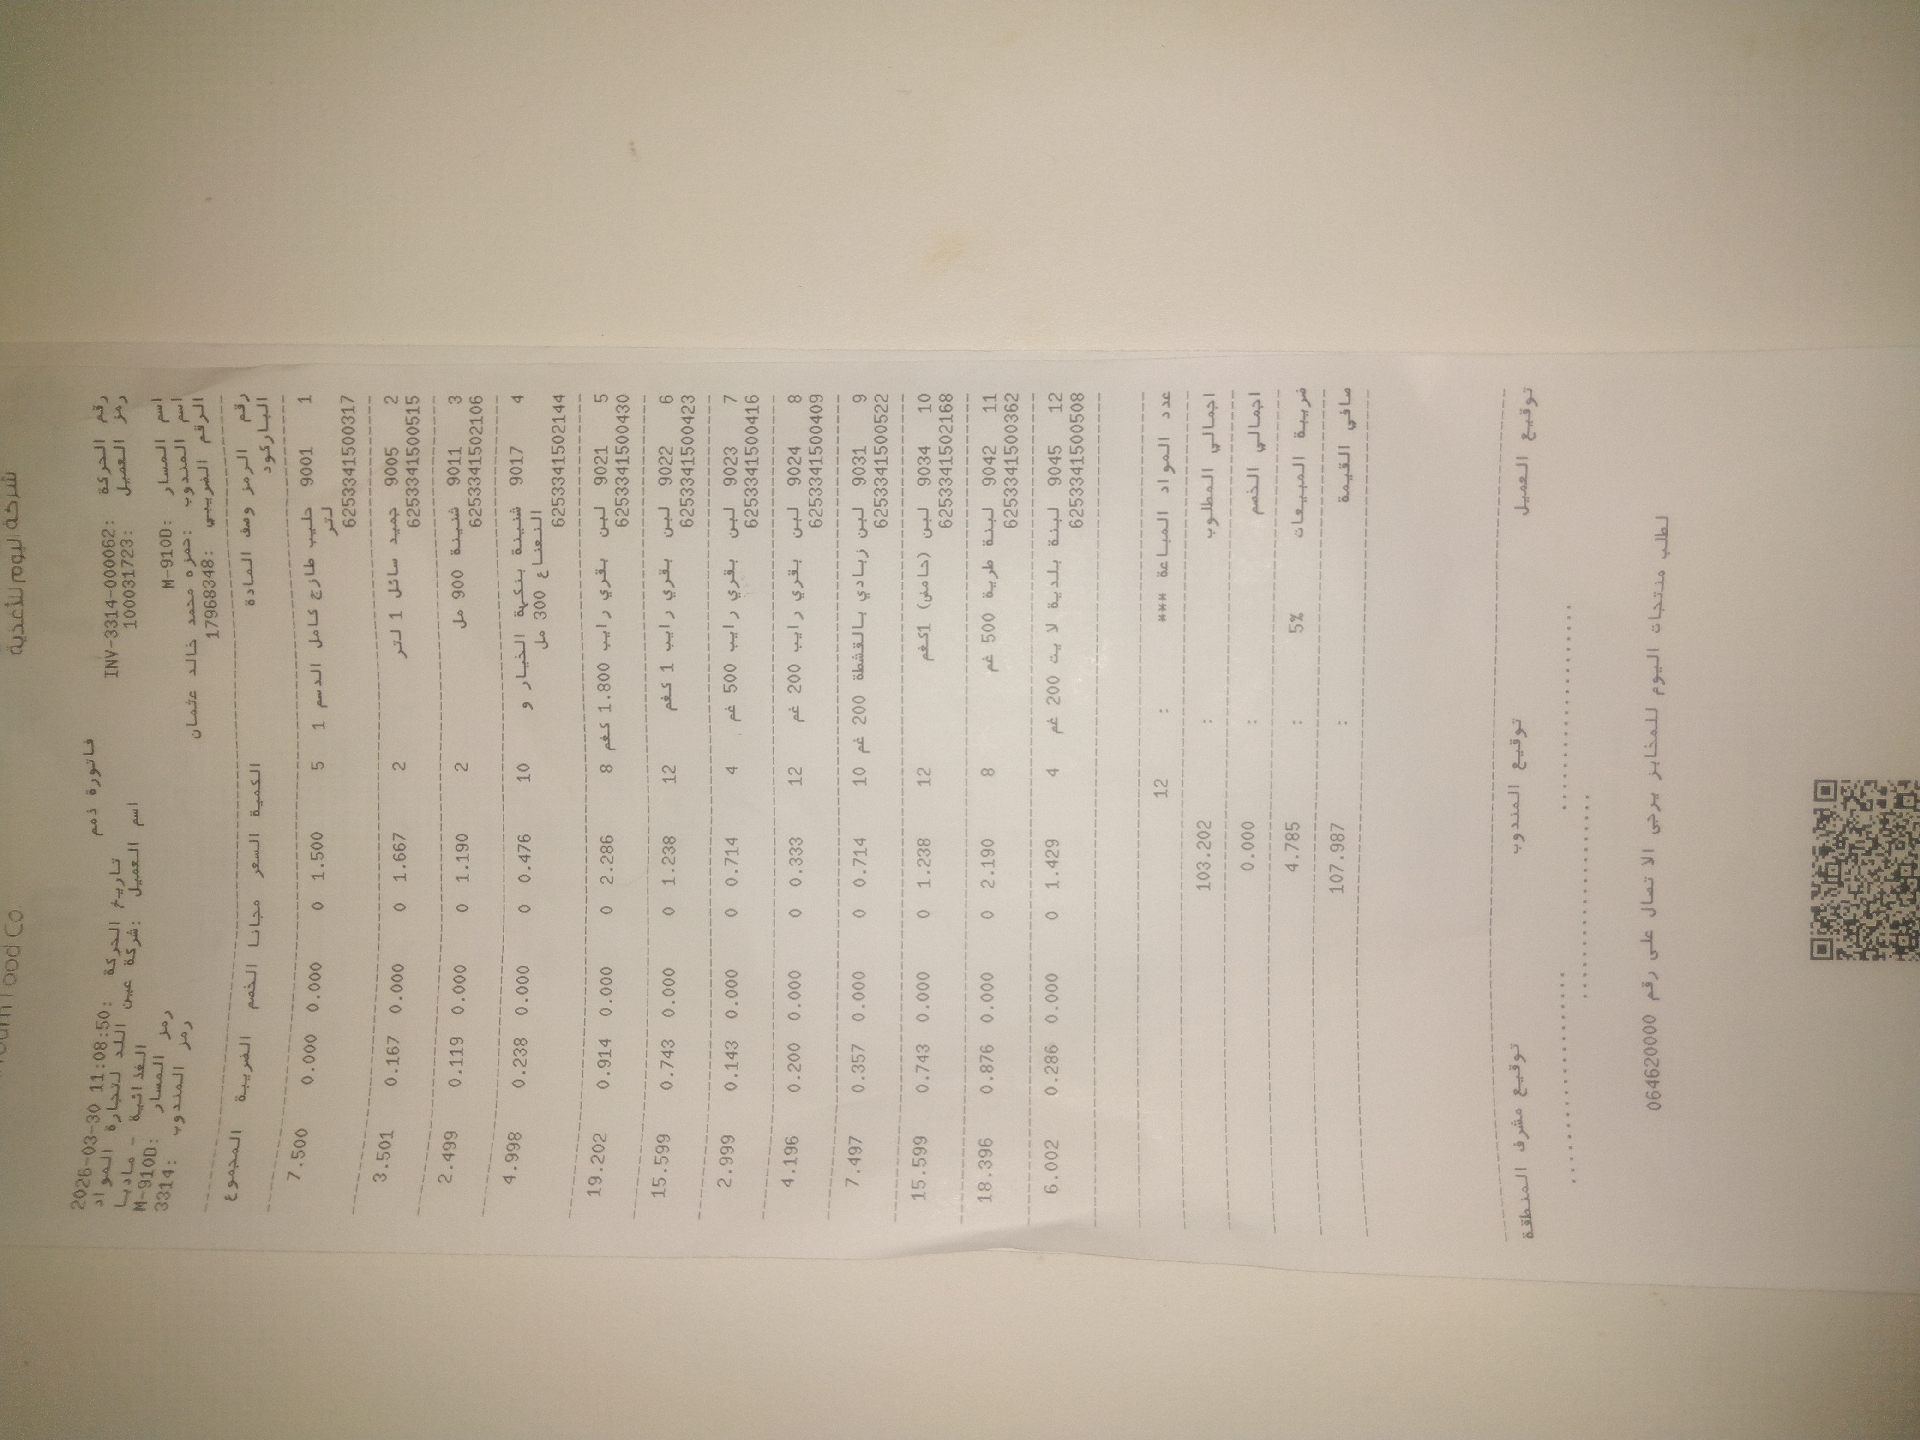 شركة اليوم للأغذية
Food Co.
فاتورة ذمم
رقم الحركة :INV-3314-000062 تاريخ الحركة :2026-03-30 11:08:50
رمز العميل :100031723 اسم العميل :شركة عين اللد لتجارة المواد
الغذائية - مادبا
اسم المسار :M-910D رمز المسار :M-910D
اسم المندوب :حمزه محمد خالد عثمان رمز المندوب :3314
الرقم الضريبي :17968348
رقم الرمز وصف المادة الكمية السعر مجانا الخصم الضريبة المجموع
الباركود
1 9001 حليب طازج كامل الدسم 1 5 1.500 0 0.000 0.000 7.500
لتر
6253341500317
2 9005 جميد سائل 1 لتر 2 1.667 0 0.000 0.167 3.501
6253341500515
3 9011 شنينة 900 مل 2 1.190 0 0.000 0.119 2.499
6253341502106
4 9017 شنينة بنكهة الخيار و 10 0.476 0 0.000 0.238 4.998
النعناع 300 مل
6253341502144
5 9021 لبن بقري رايب 1.800 كغم 8 2.286 0 0.000 0.914 19.202
6253341500430
6 9022 لبن بقري رايب 1 كغم 12 1.238 0 0.000 0.743 15.599
6253341500423
7 9023 لبن بقري رايب 500 غم 4 0.714 0 0.000 0.143 2.999
6253341500416
8 9024 لبن بقري رايب 200 غم 12 0.333 0 0.000 0.200 4.196
6253341500409
9 9031 لبن زبادي بالقشطة 200 غم 10 0.714 0 0.000 0.357 7.497
6253341500522
10 9034 لبن (حامض) 1كغم 12 1.238 0 0.000 0.743 15.599
6253341502168
11 9042 لبنة طرية 500 غم 8 2.190 0 0.000 0.876 18.396
6253341500362
12 9045 لبنة بلدية لايت 200 غم 4 1.429 0 0.000 0.286 6.002
6253341500508
عدد المواد المباعة *** : 12
اجمالي المطلوب : 103.202
اجمالي الخصم : 0.000
ضريبة المبيعات 5% : 4.785
صافي القيمة : 107.987
توقيع العميل توقيع المندوب توقيع مشرف المنطقة
لطلب منتجات اليوم للمخابز يرجى الاتصال على رقم 064620000